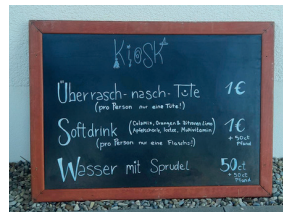 Kiosk
Überrasch-nasch-Tüte 1€
(pro Person nur eine Tüte!)
Softdrink (Calamin, Orangen & Zitronen Limo, 1€
Apfelschorle, Isotee, Multivitamin) + 50ct
(pro Person nur eine Flasche!) Pfand
Wasser mit Sprudel 50ct
+ 50ct
Pfand